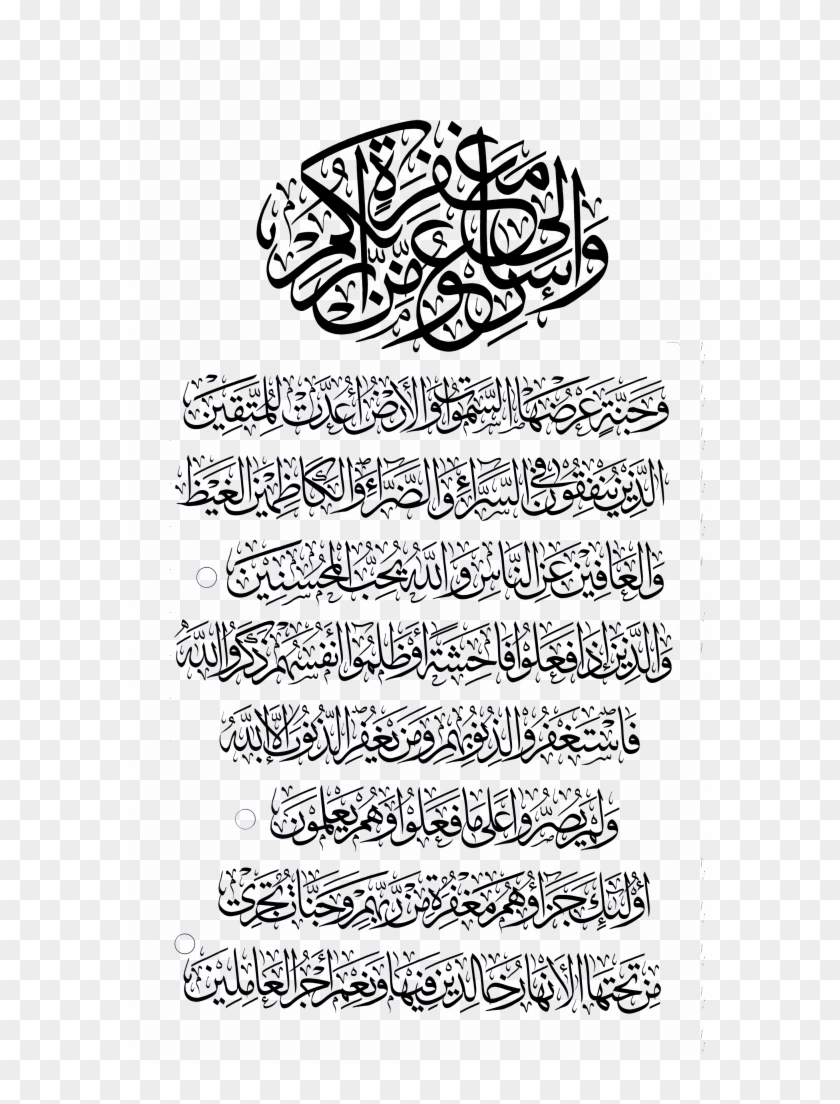 وَسَارِعُوا إِلَى مَغْفِرَةٍ مِّن رَّبِّكُمْ
وَجَنَّةٍ عَرْضُهَا السَّمٰوَاتُ وَالْأَرْضُ أُعِدَّتْ لِلْمُتَّقِينَ
الَّذِينَ يُنفِقُونَ فِي السَّرَّاءِ وَالضَّرَّاءِ وَالْكَاظِمِينَ الْغَيْظَ
وَالْعَافِينَ عَنِ النَّاسِ وَاللَّهُ يُحِبُّ الْمُحْسِنِينَ
وَالَّذِينَ إِذَا فَعَلُوا فَاحِشَةً أَوْ ظَلَمُوا أَنفُسَهُمْ ذَكَرُوا اللَّهَ
فَاسْتَغْفَرُوا لِذُنُوبِهِمْ وَمَن يَغْفِرُ الذُّنُوبَ إِلَّا اللَّهُ
وَلَمْ يُصِرُّوا عَلَى مَا فَعَلُوا وَهُمْ يَعْلَمُونَ
أُولَئِكَ جَزَاؤُهُم مَغْفِرَةٌ مِن رَبِّهِمْ وَجَنَّاتٌ تَجْرِي
مِن تَحْتِهَا الْأَنْهَارُ خَالِدِينَ فِيهَا وَنِعْمَ أَجْرُ الْعَامِلِينَ